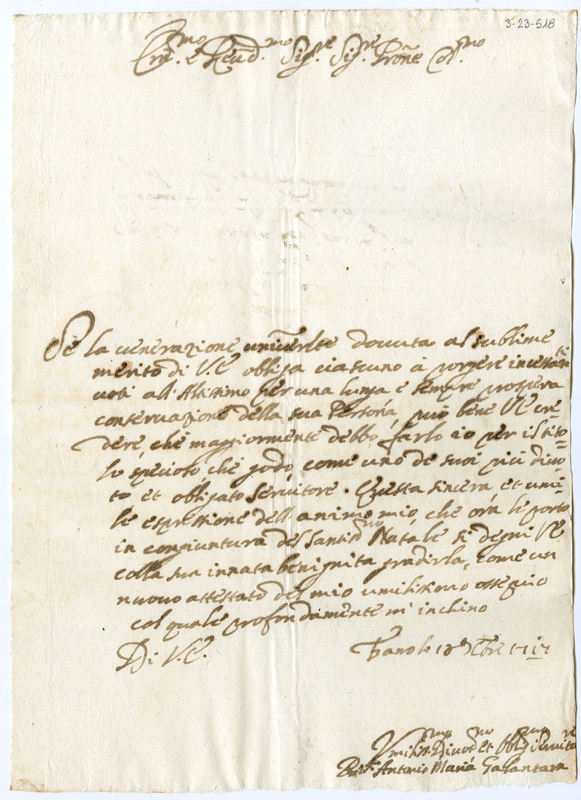 3-23-518
Em.mo e Reud.mo Sig.re Sig.re Prõne Col.mo
Se la uenerazione uniuer.lte douuta al sublime
merito di V.E. obliga ciascuno à porgere incessanti
uoti all Altissimo per una lunga e sempre prospera
conseruazione della sua Persona, può bene V.E. cre-
dere, che maggiormente debbo farlo io per il tito-
lo specioso che godo, come uno de suoi più diuo-
to et obligato seruitore. Questa sincera et umi-
le espressione dell animo mio, che ora le porto
in congiuntura del Santiss.mo Natale si degni V.E.
colla sua innata benignità gradirla, come un
nuouo attestato del mio umilissimo ossequio
col quale profondamente mi inchino
Di V.E.
Fano li 18 Xbre 1717
Vmiliss.mo Diuot.mo et Obl.mo Seruit.re
Antonio Maria Galantara